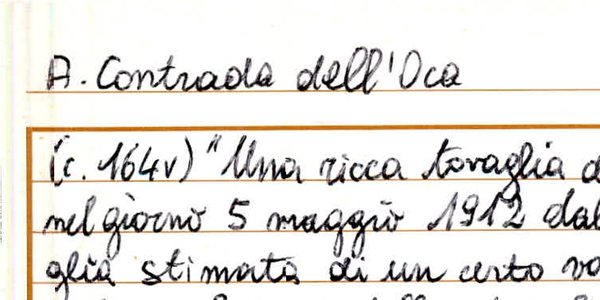 A. Contrada dell'Oca
(c. 164v) "Una ricca tovaglia d
nel giorno 5 maggio 1912 dal
glia stimata di un certo va